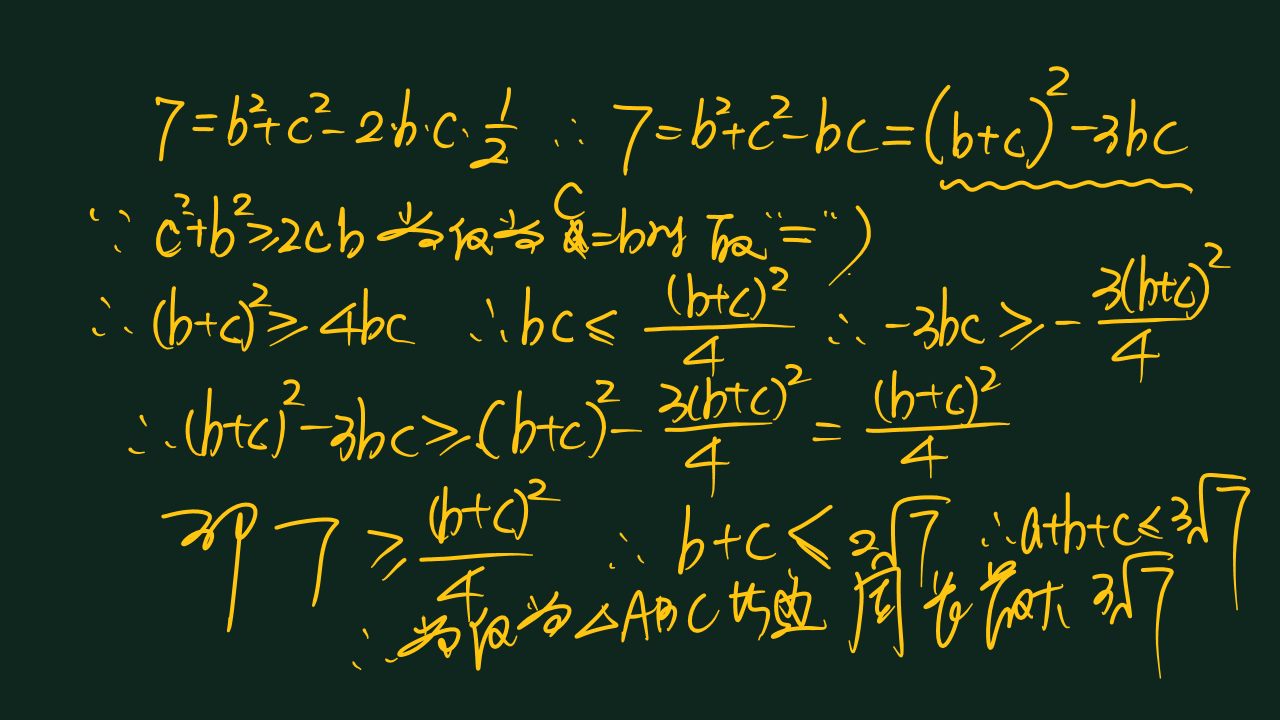 7=b²+c²-2·b·c·1/2 ∴ 7=b²+c²-bc=(b+c)²-3bc
∵ c²+b²≥2cb 当仅当c=b时取“=”)
∴ (b+c)²≥4bc ∴bc≤(b+c)²/4 ∴-3bc≥-3(b+c)²/4
∴(b+c)²-3bc≥(b+c)²-3(b+c)²/4=(b+c)²/4
即7≥(b+c)²/4 ∴ b+c≤2√7 ∴a+b+c≤3√7
∴当仅当△ABC 周长最大3√7